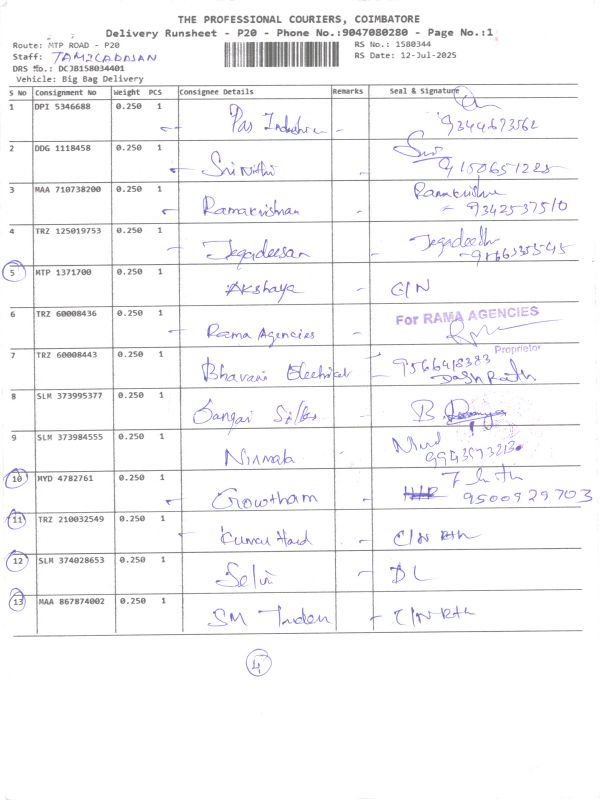 THE PROFESSIONAL COURIERS, COIMBATORE
Delivery Runsheet - P20 - Phone No.:9047080280 - Page No.:1
Route: MTP ROAD - P20 RS No.: 1580344
Staff: RS Date: 12-Jul-2025
DRS No.: DCJB158034401
Vehicle: Big Bag Delivery
S No Consignment No Weight PCS Consignee Details Remarks Seal & Signature
1 DPI 5346688 0.250 1 Pas 9344673562
2 DDG 1118458 0.250 1 Sri Nithi 9150651225
3 MAA 710738200 0.250 1 Ramakrishnan - Ramakrishna - 9342537510
4 TRZ 125019753 0.250 1 Jegadeesan -
5 MTP 1371700 0.250 1 Akshaya - C/N
6 TRZ 60008436 0.250 1 Rama Agencies - For RAMA AGENCIES
Proprietor
7 TRZ 60008443 0.250 1 Bhavani Electrical - 9566418383
Dashrath
8 SLM 373995377 0.250 1 Silks - B.
9 SLM 373984555 0.250 1 Nirmala - 9943573213
10 MYD 4782761 0.250 1 Growtham - 9500929703
11 TRZ 210032549 0.250 1 Kumar Hard - C/N Rth
12 SLM 374028653 0.250 1 Selvi - DL
13 MAA 867874002 0.250 1 SM - C/N Rth
4